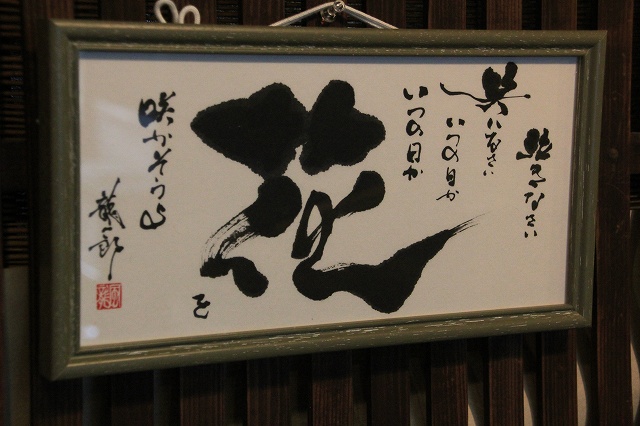 泣きなさい
笑いなさい
いつの日か
いつの日か
花を
咲かそうよ